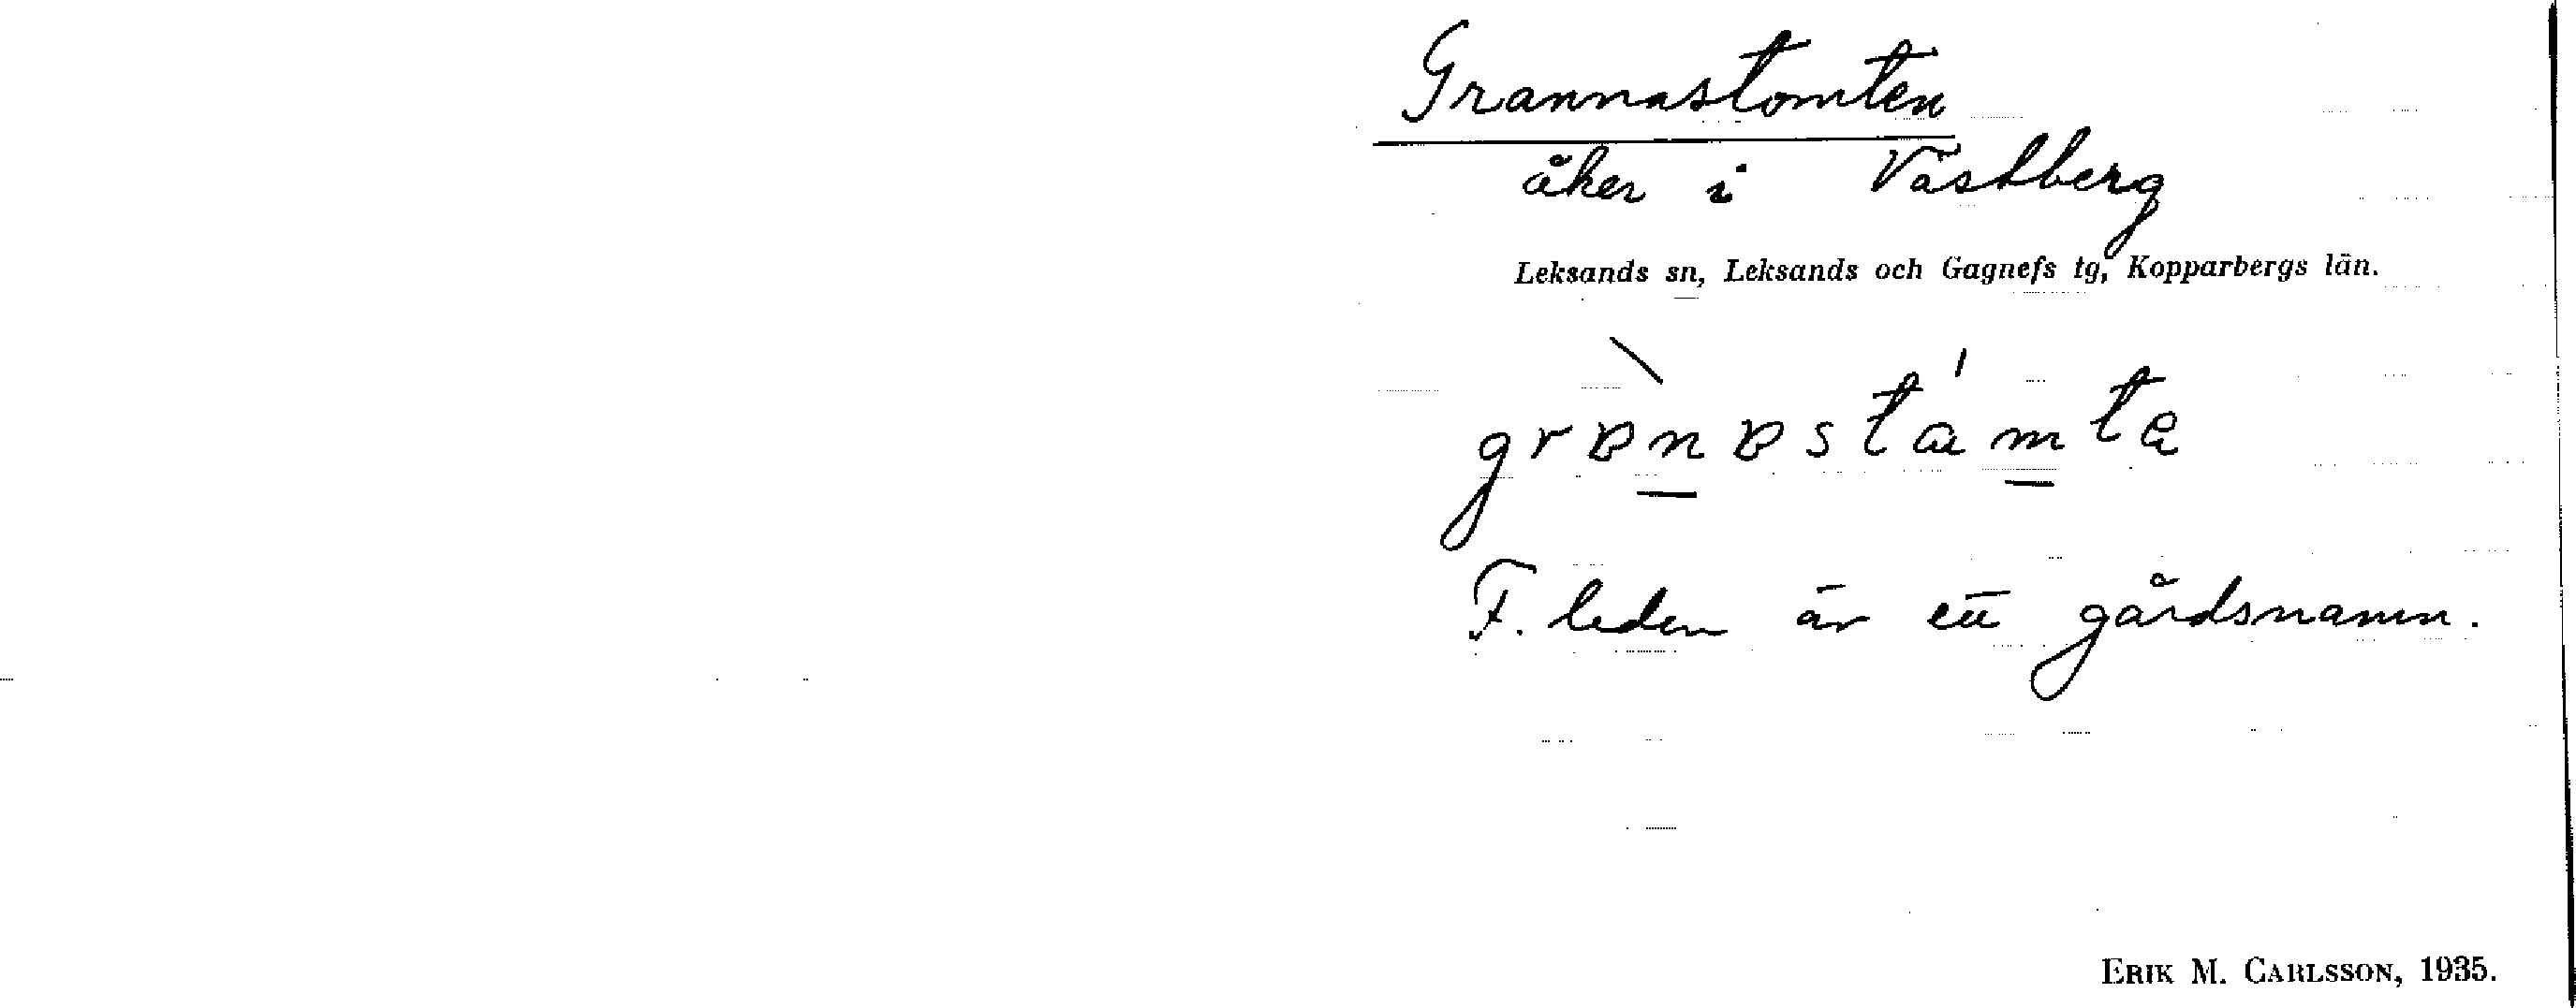 Grannastomten
åker i Västberg
Leksands sn, Leksands och Gagnefs tg, Kopparbergs län.
F. leden är ett gårdsnamn.
ERIK M. CARLSSON, 1935.